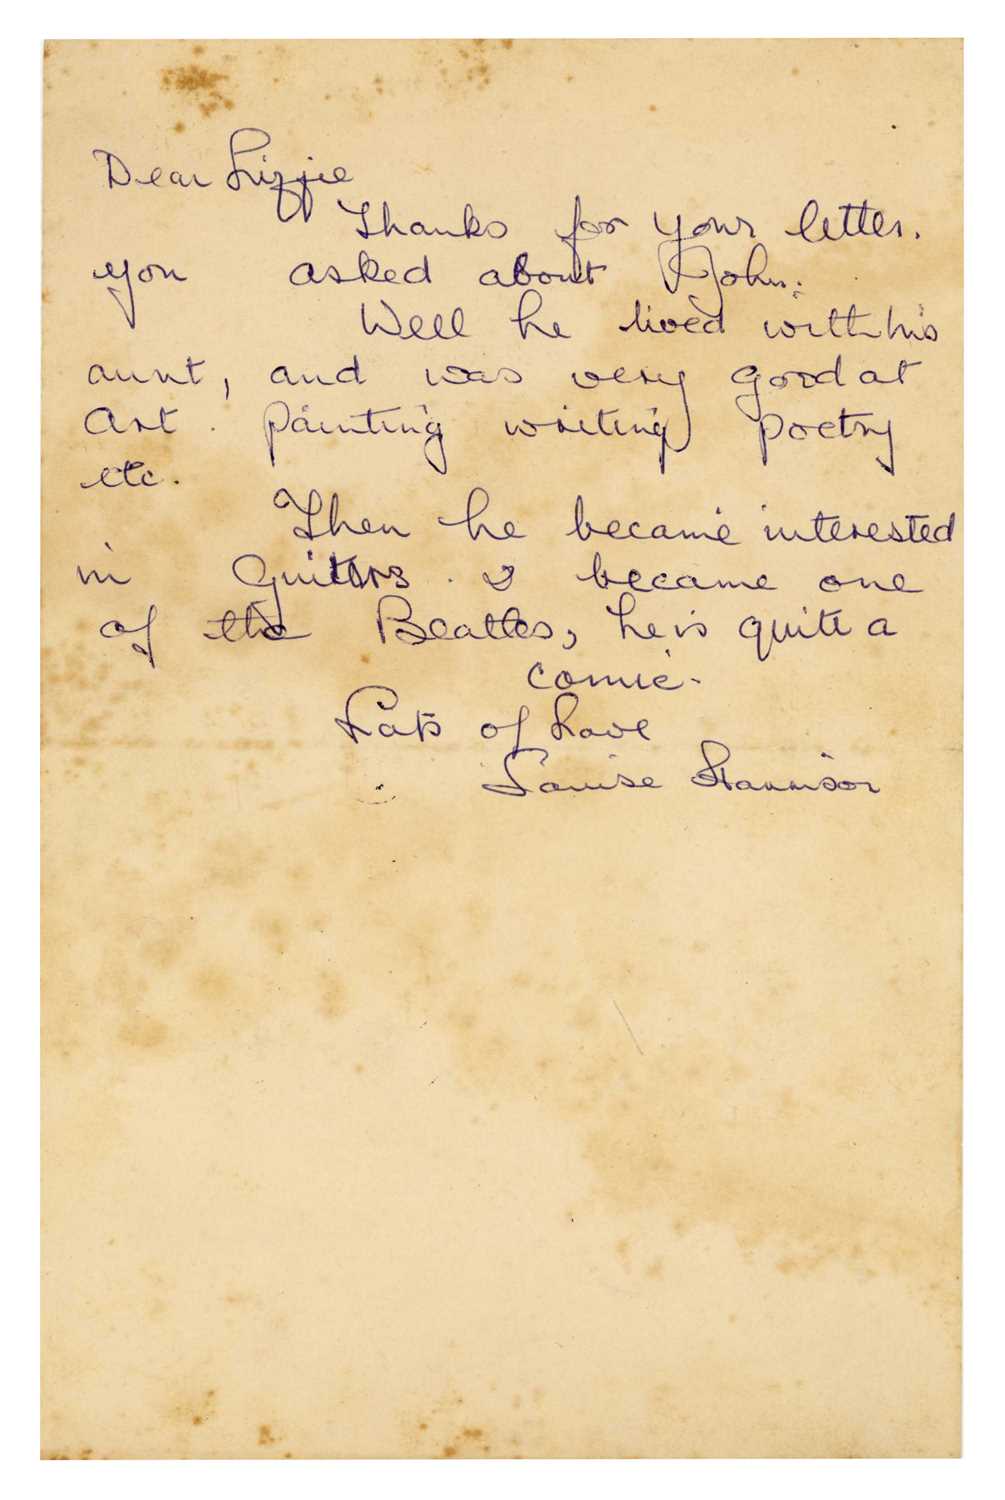 Dear Lizzie
Thanks for your letter.
you asked about John.
Well he lived with his
aunt, and was very good at
Art. painting writing poetry
etc.
Then he became interested
in Guitars. & became one
of the Beatles, he is quite a
comic.
Lots of Love
Louise Harrison